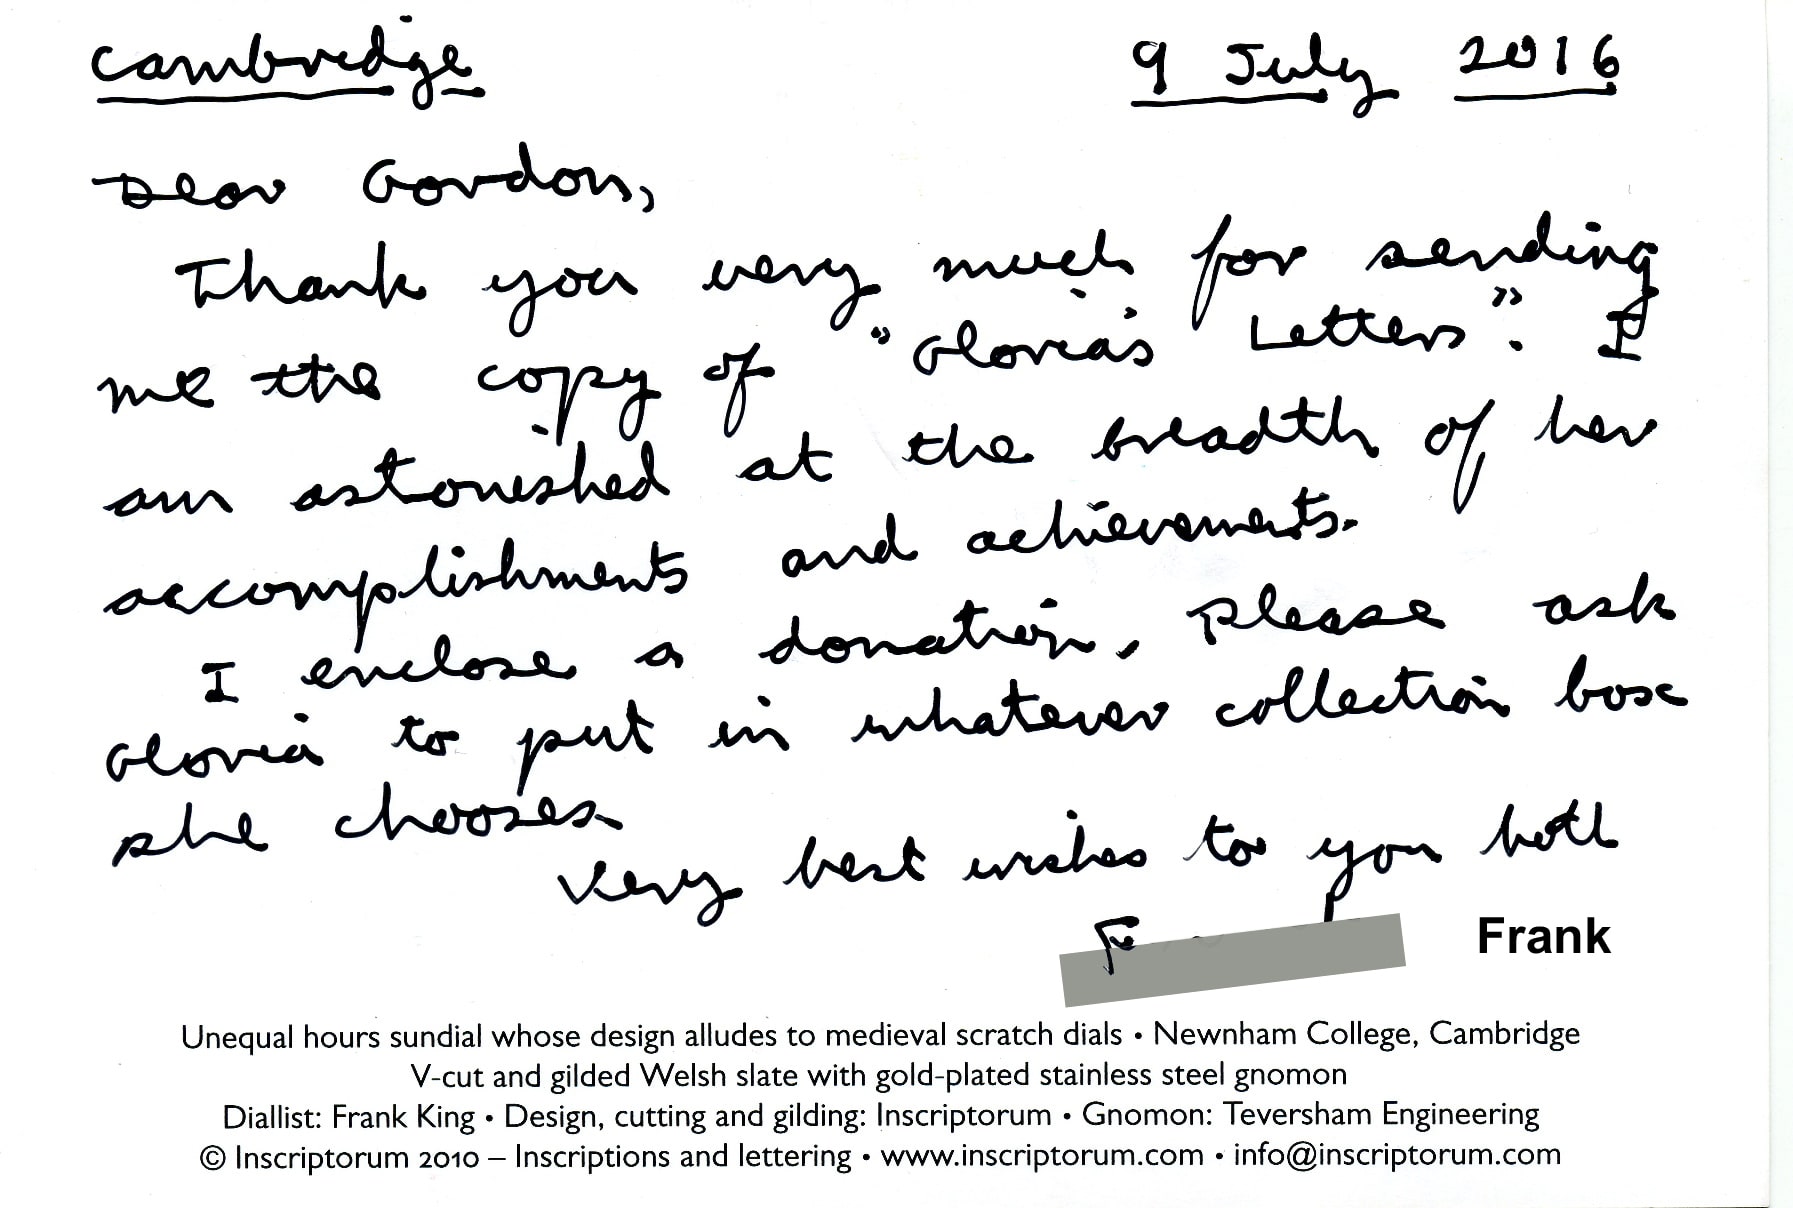 Cambridge 9 July 2016
Dear Gordon,
Thank you very much for sending
me the copy of "Gloria's Letters". I
am astonished at the breadth of her
accomplishments and achievements.
I enclose a donation, please ask
Gloria to put in whatever collection box
she chooses.
Very best wishes to you both
Frank
Unequal hours sundial whose design alludes to medieval scratch dials • Newnham College, Cambridge
V-cut and gilded Welsh slate with gold-plated stainless steel gnomon
Diallist: Frank King • Design, cutting and gilding: Inscriptorum • Gnomon: Teversham Engineering
© Inscriptorum 2010 – Inscriptions and lettering • www.inscriptorum.com • info@inscriptorum.com